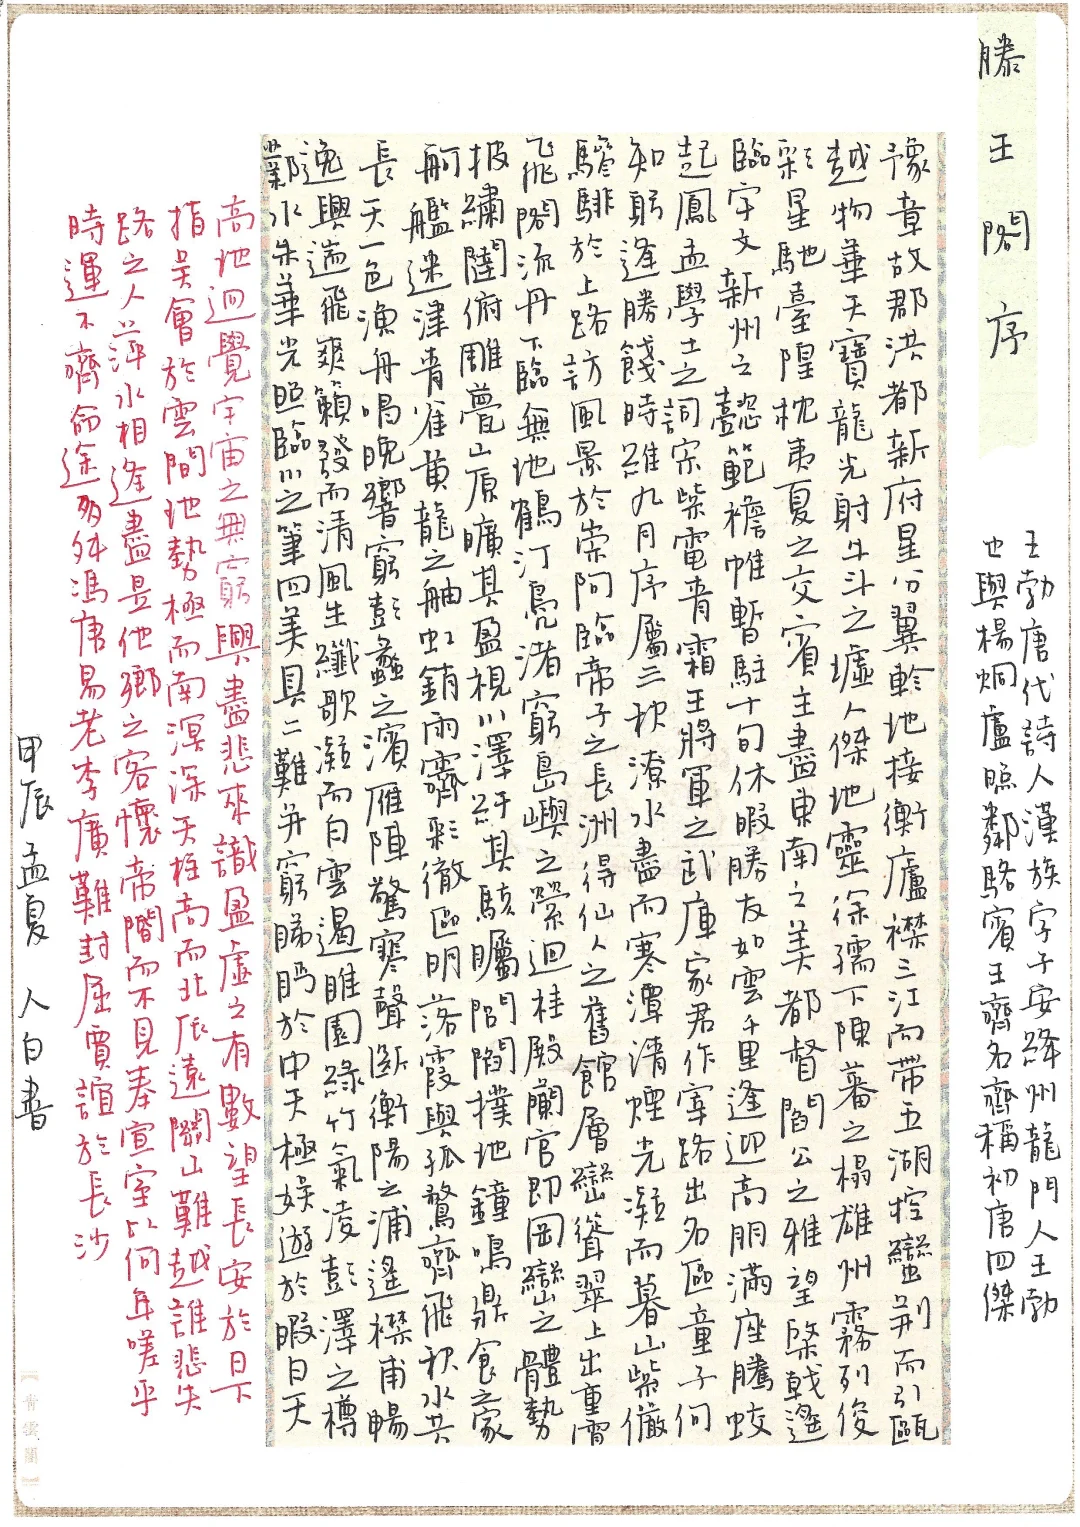 滕王閣序
王勃唐代詩人漢族字子安絳州龍門人王勃
也與楊炯盧照鄰駱賓王齊名齊稱初唐四傑
豫章故郡洪都新府星分翼軫地接衡廬襟三江而帶五湖控蠻荆而引甌
越物華天寶龍光射牛斗之墟人傑地靈徐孺下陳蕃之榻雄州霧列俊
彩星馳臺隍枕夷夏之交賓主盡東南之美都督閻公之雅望棨戟遙
臨宇文新州之懿範襜帷暫駐十旬休暇勝友如雲千里逢迎高朋滿座騰蛟
起鳳孟學士之詞宗紫電青霜王將軍之武庫家君作宰路出名區童子何
知躬逢勝餞時維九月序屬三秋潦水盡而寒潭清煙光凝而暮山紫儼
驂騑於上路訪風景於崇阿臨帝子之長洲得仙人之舊館層巒聳翠上出重霄
飛閣流丹下臨無地鶴汀鳧渚窮島嶼之縈迴桂殿蘭宫即岡巒之體勢
披繡闥俯雕甍山原曠其盈視川澤紆其駭矚閭閻撲地鐘鳴鼎食之家
舸艦迷津青雀黄龍之舳虹銷雨霽彩徹區明落霞與孤鶩齊飛秋水共
長天一色漁舟唱晚響窮彭蠡之濱雁陣驚寒聲断衡陽之浦遙襟甫暢
逸興遄飛爽籟發而清風生纖歌凝而白雲遏睢園綠竹氣凌彭澤之樽
鄴水朱華光照臨川之筆四美具二難并窮睇眄於中天極娱遊於暇日天
高地迥覺宇宙之無窮興盡悲來識盈虛之有數望長安於日下
指吴會於雲間地勢極而南溟深天柱高而北辰遠關山難越誰悲失
路之人萍水相逢盡是他鄉之客懷帝閽而不見奉宣室以何年嗟乎
時運不齊命途多舛馮唐易老李廣難封屈賈誼於長沙
甲辰孟夏 人白書
【青雲蘭】